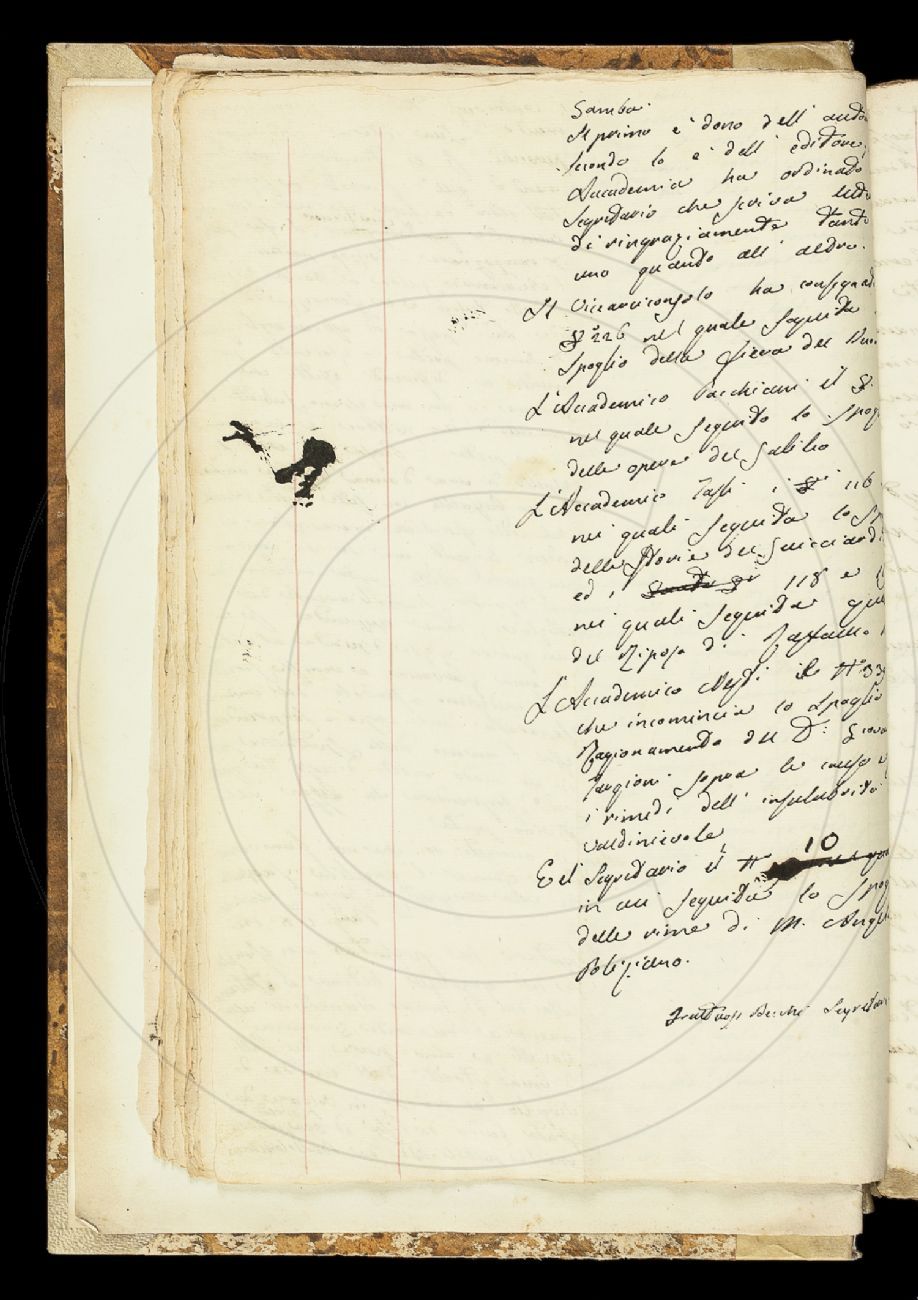 Gamba.
Il primo è dono dell' auto
secondo lo è dell' editore,
Accademia ha ordinato
Segretario che scriva lette
di ringraziamento tanto
uno quanto all' altro.
Il Vicearciconsolo ha consegnat
Q.º 226 nel quale seguita
spoglio della Fiera del Buo
L'Accademico Pacchiani il Q.
nel quale seguita lo spog
delle opere del Galileo
L'Accademico i Q.ri 116
nei quali seguita lo sp
delle Storie del Guicciardi
ed i 118 e
nei quali seguita que
del Riposo di Raffaello
L'Accademico il N.º 33
che incomincia lo spoglio
Ragionamento del D.r Giova
Targioni sopra le cause e
i rimedi dell' insalubrità
Valdinievole
E il Segretario il N.º 10
in cui seguita lo spog
delle rime di M. Ange
Poliziano.
Fruttuoso Becchi Segretari